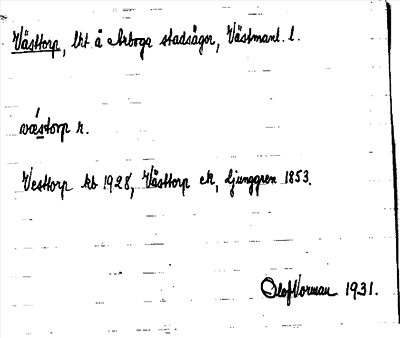 Västtorp, lht å Arboga stadsägor, Västmanl. l.
væstorp r.
Vesttorp kb 1928, Västtorp ek, Ljunggren 1853.
Olof Vorman 1931.